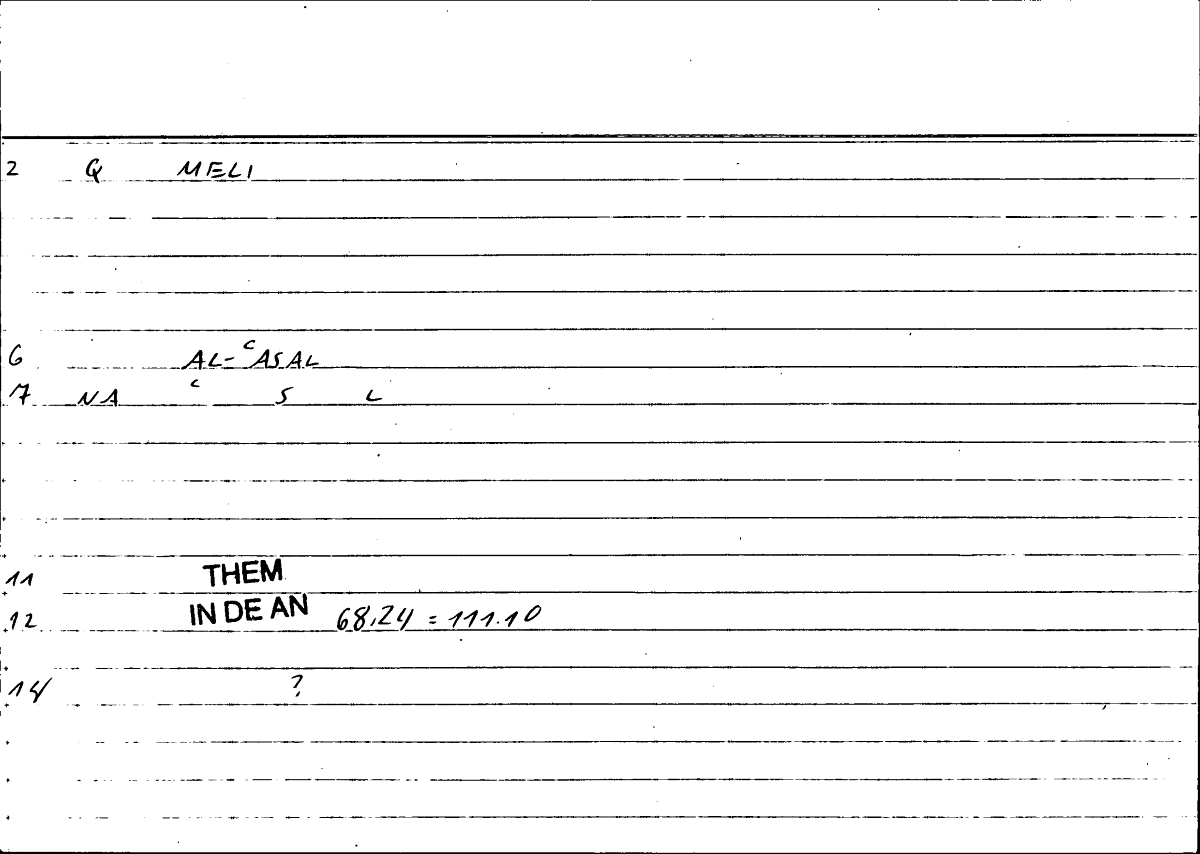 2 Q MELI
6 AL-ʿASAL
7 NA ʿ S L
11 THEM
12 IN DE AN 68,24 = 111.10
14 ?